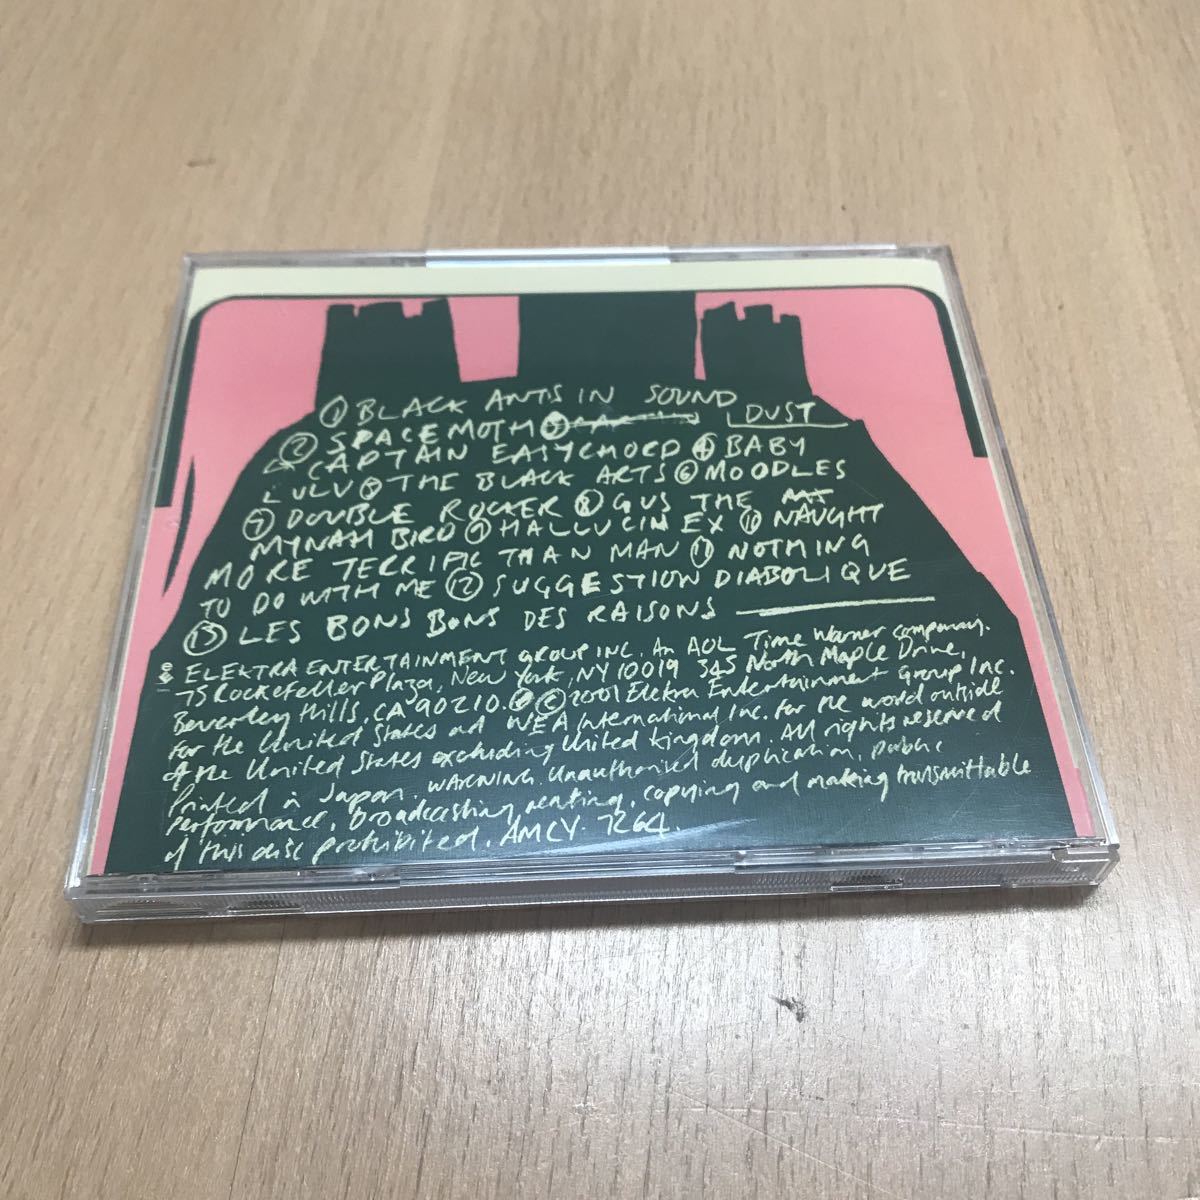 ① BLACK ANTS IN SOUND
DUST
② SPACEMOTH ③
CAPTAIN EASYCHORD ④ BABY
LULU ⑤ THE BLACK ARTS ⑥ MOODLES
⑦ DOUBLE ROCKER ⑧ GUS THE
MYNAH BIRD ⑨ HALLUCINEX ⑩ NAUGHT
MORE TERRIFIC THAN MAN ⑪ NOTHING
TO DO WITH ME ⑫ SUGGESTION DIABOLIQUE
⑬ LES BONS BONS DES RAISONS
ELEKTRA ENTERTAINMENT GROUP INC. An AOL Time Warner company.
75 Rockefeller Plaza, New York, NY 10019 345 North Maple Drive,
Beverley Hills, CA 90210. ℗ © 2001 Elektra Entertainment Group Inc.
for the United States and WEA International Inc. for the world outside
of the United States excluding United Kingdom. All rights reserved
Printed in Japan. WARNING. Unauthorised duplication, public
performance, broadcasting, renting, copying and making transmittable
of this disc prohibited. AMCY. 7264.